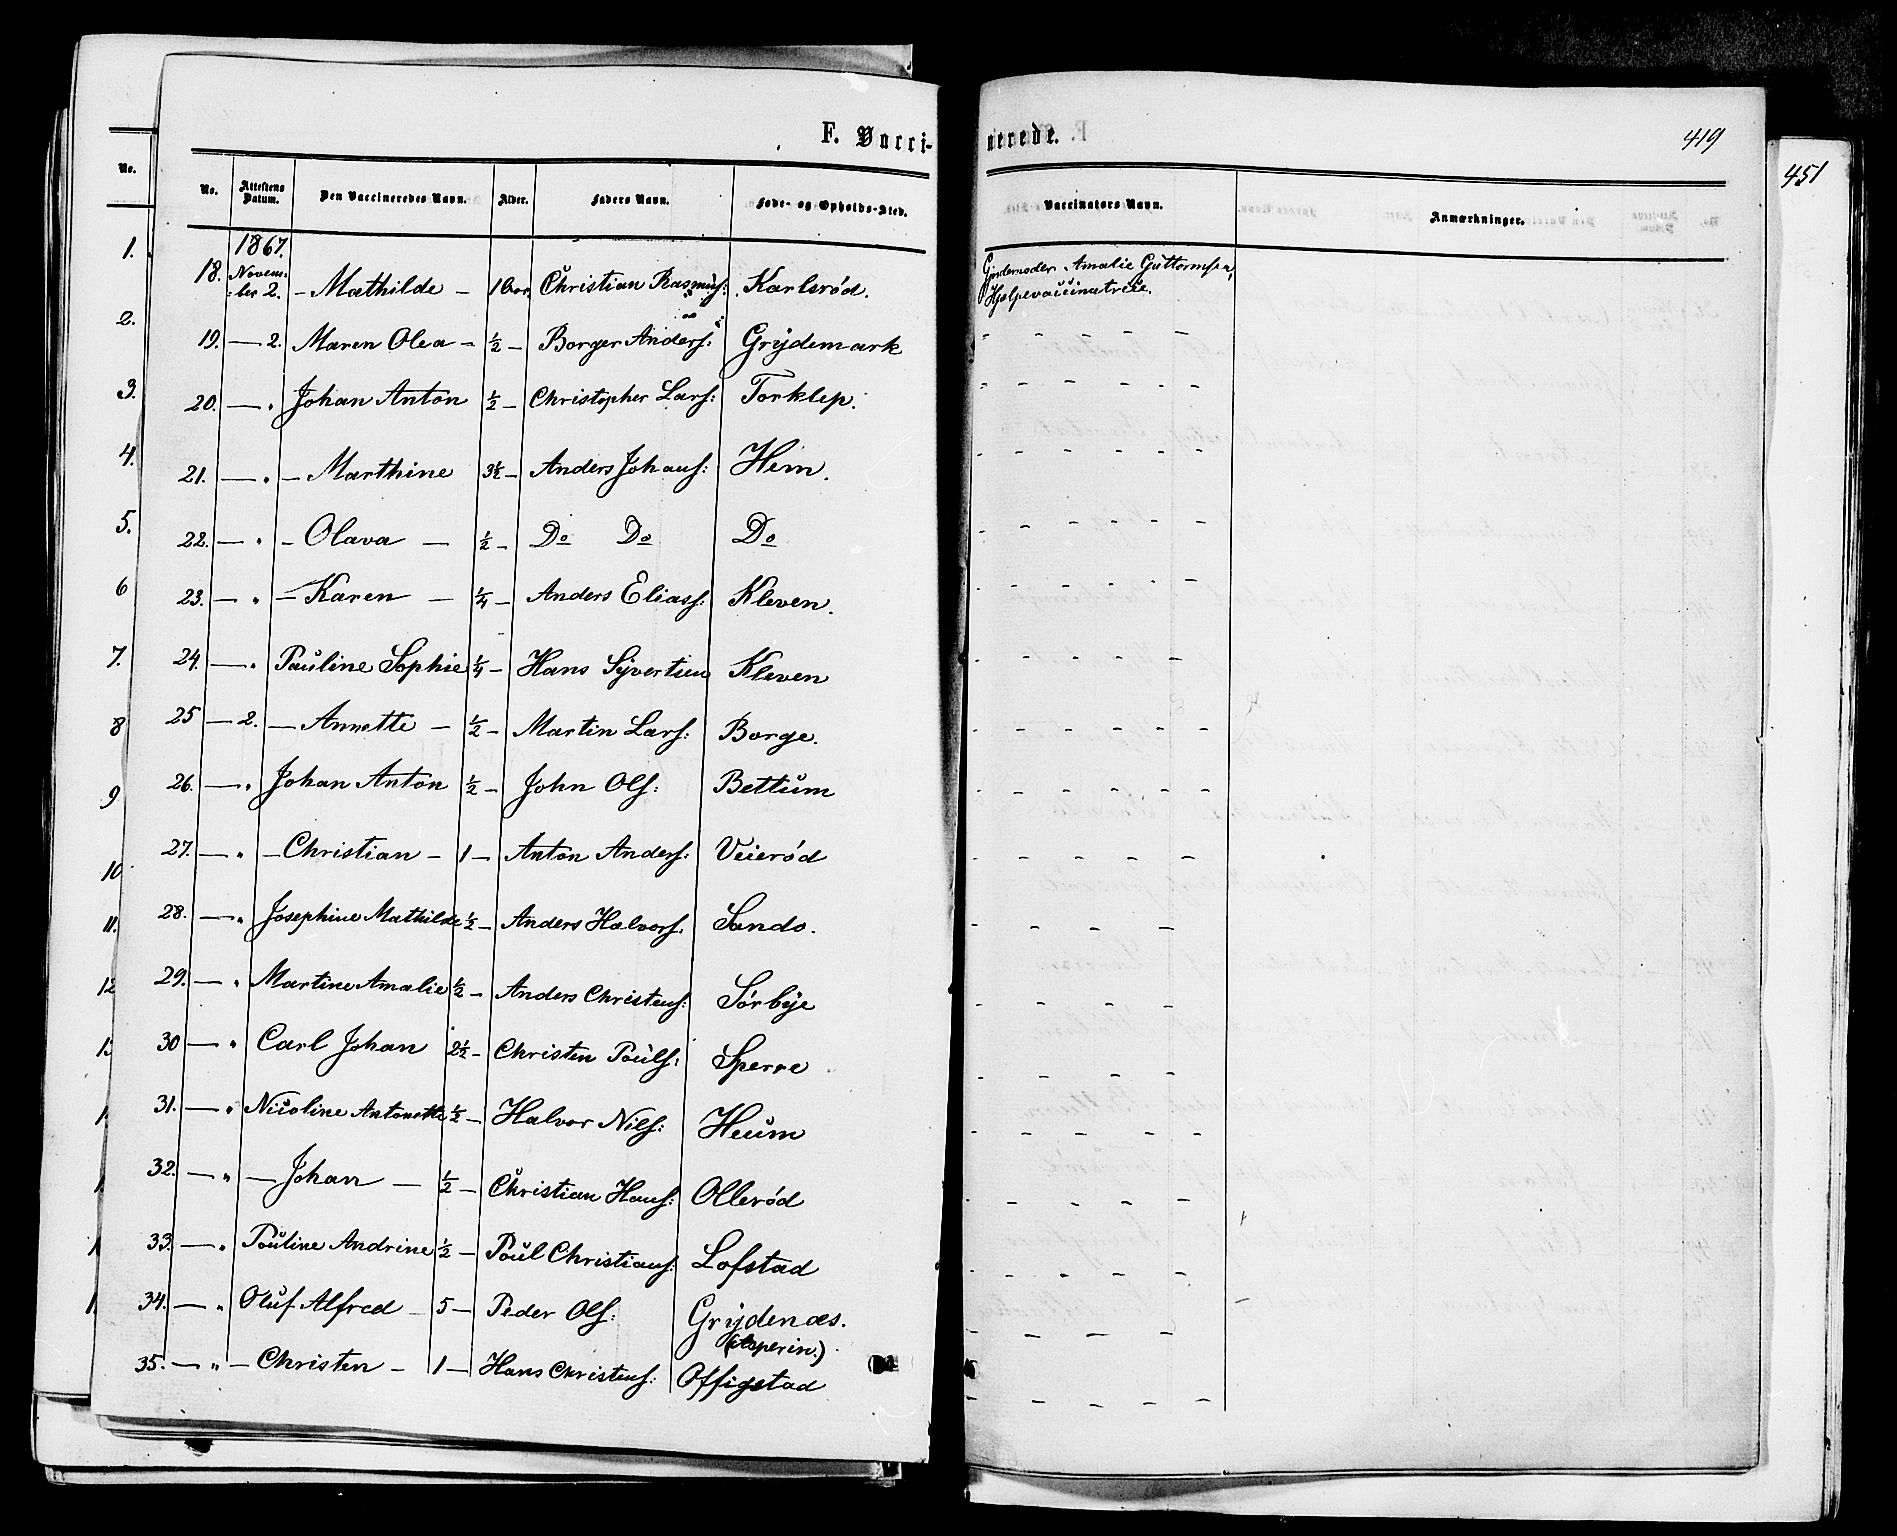 F. Vacci-
nerede.
419
451
No.
No. Attestens Datum. Den Vaccineredes Navn. Alder. Faders Navn. Føde- og Opholds-Sted. Vaccinators Navn. Anmærkninger.
1867.
18. Novem-
:ber 2. - Mathilde - Christian Rasmusſ: Karlsrød. Gjordemoder Amalie Guttormsen,
Hjelpevaccinatrice.
19. — 2. Maren Olea - ½ - Borger Andersſ: Grydemark
20. — " Johan Anton ½ - Christopher Larsſ: Torklep.
21. — " - Marthine 3½ - Anders Johansſ: Hem.
22. — " - Olava — ½ - Do Do Do
23. — " - Karen — ¼ - Anders Eliasſ: Kleven.
24. — " Pauline Sophie ¼ - Hans Syvertsen Kleven
25 — 2. - Annette - ½ - Martin Larsſ: Borge.
26. — " Johan Anton ½ - John Olſ: Bettum
27. — " - Christian - 1 - Anton Andersſ: Veierød
28. — " Josephine Mathilde ½ - Anders Halvorsſ. Sando.
29. — " Martine Amalie ½ - Anders Christensſ: Sørbye
30 — " Carl Johan 2½ - Christen Poulsſ: Sperre
31. — " Nicoline Antonette ½ - Halvor Nilsſ: Heum
32. — " — Johan — ½ - Christian Hansſ: Ollerød
33. — " Pouline Andrine ½ - Poul Christiansſ: Lofstad
34. — " Oluf Alfred - 5 - Peder Olſ: Grydenæs.
35. — " - Christen - 1 - Hans Christensſ: Offigstad
1.
2.
3.
4.
5.
6
7.
8
9
10
11.
12